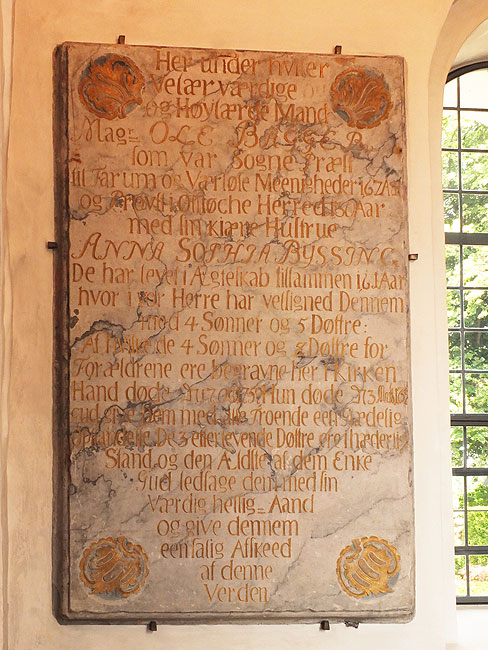 Her under hviler
Velærværdige og
og Høylærde Mand
Mag= OLE BAGGER
som var Sogne Præst
til Farum og Værløse Meenigheder
og Provst i Ølstøche Herred Aar
med sin kiære Hustrue
ANNA SOPHIA BYSSING
De har levet i Ægteskab tilsammen Aar
hvor i vor Herre har velsigned Dennem
med 4 Sønner og 5 Døttre:
de 4 Sønner og Døttre for
Forældrene ere begravne her i Kirken
Hand døde Hun døde
Gud dem med alle Troende een
De 3 efterlevende Døttre ere
Stand og den Ældste af dem Enke
Gud ledsage dem med sin
Værdig hellig= Aand
og give dennem
een salig Afskeed
af denne
Verden